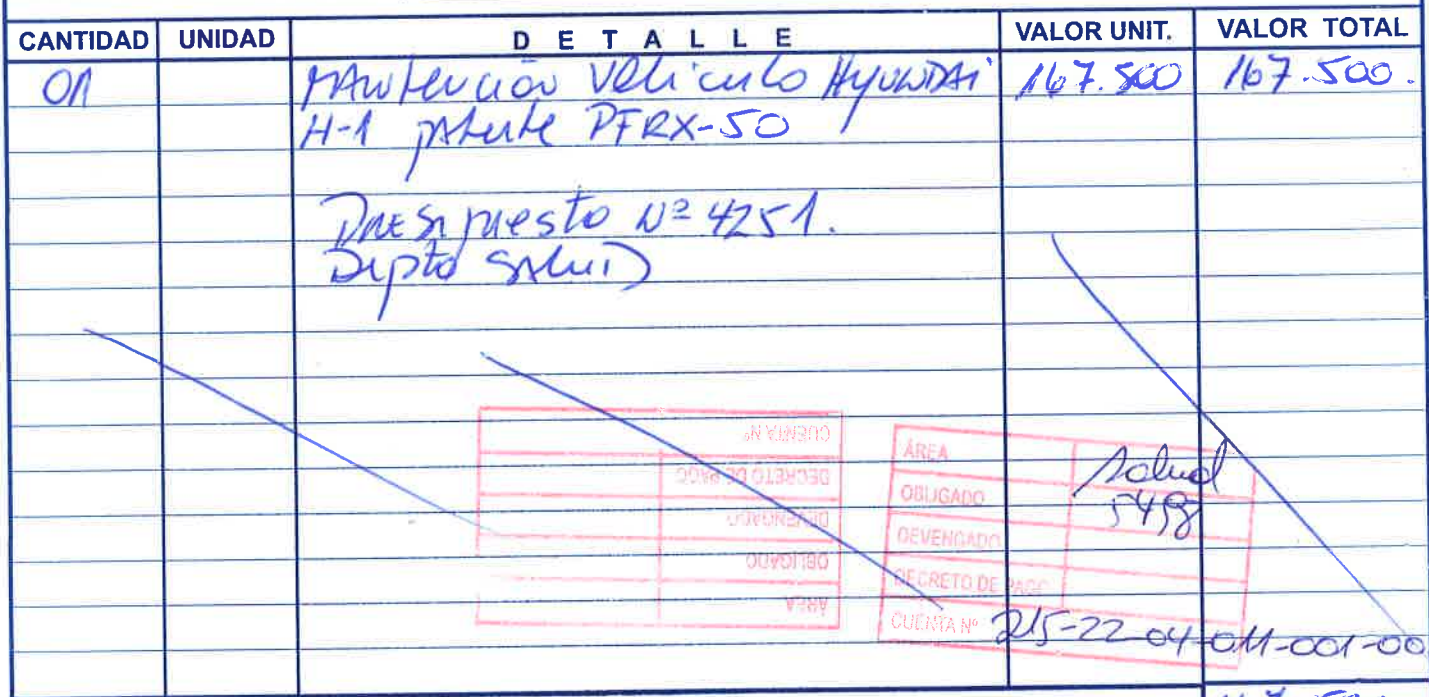 CANTIDAD UNIDAD DETALLE VALOR UNIT. VALOR TOTAL
01 Mantención Vehiculo Hyundai 167.500 167.500.
H-1 patente PFRX-50
Presupuesto Nº 4251.
Depto Salud
CUENTA Nº
DECRETO DE PAGO
DEVENGADO
OBLIGADO
ÁREA
ÁREA Salud
OBLIGADO 5498
DEVENGADO
DECRETO DE PAGO
CUENTA Nº 215-22-04-011-001-00